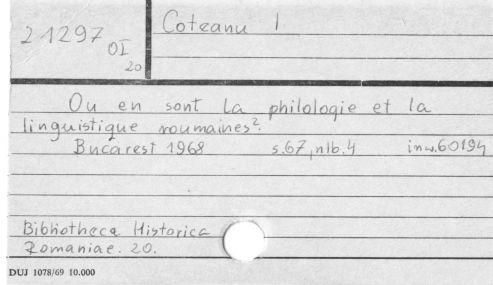 21297 OI
20
Coteanu I
Ou en sont la philologie et la
linguistique roumaines?.
Bucarest 1968 s.67, nlb.4 inw.60194
Bibliotheca Historica
Romaniae. 20.
DUJ 1078/69 10.000